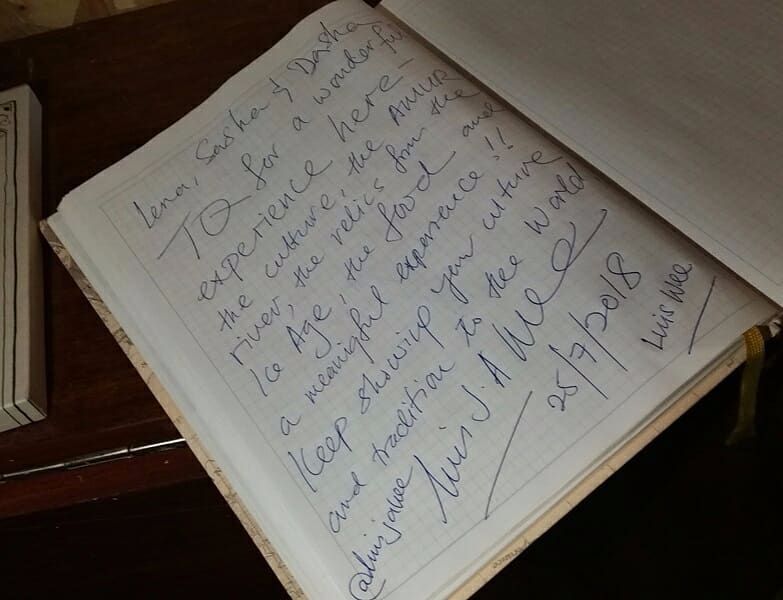 Lena, Sasha & Dasha
TQ for a wonderful
experience here –
the culture, the AMUR
river, the relics from the
Ice Age, the food and
a meaningful experience!!
Keep showing your culture
and tradition to the World
Luis J. A Wee
@luisjawee
25/7/2018
Luis Wee